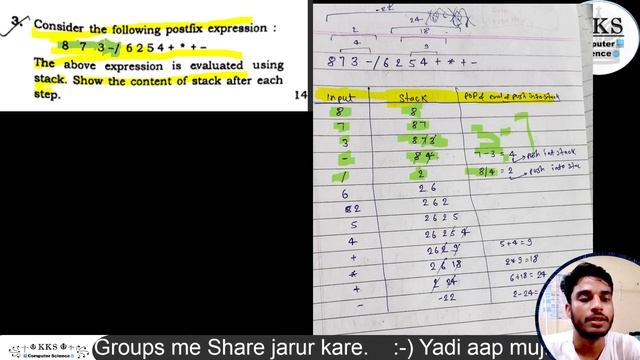 3. Consider the following postfix expression :
8 7 3 - / 6 2 5 4 + * + -
The above expression is evaluated using
stack. Show the content of stack after each
step. 14
24
2 18
4 9
8 7 3 - / 6 2 5 4 + * + -
Input Stack pop & eval & push into stack
8 8
7 8 7
3 8 7 3
- 8 4 7-3 = 4 push into stack
/ 2 8/4 = 2 push into
6 2 6
2 2 6 2
5 2 6 2 5
4 2 6 2 5 4
+ 2 6 2 9 5+4=9
* 2 6 18 2*9=18
+ 2 24 6+18=24
- -22 2-24=
3-7
KKS
Computer
Science
KKS
Computer Science
Groups me Share jarur kare. :-) Yadi aap